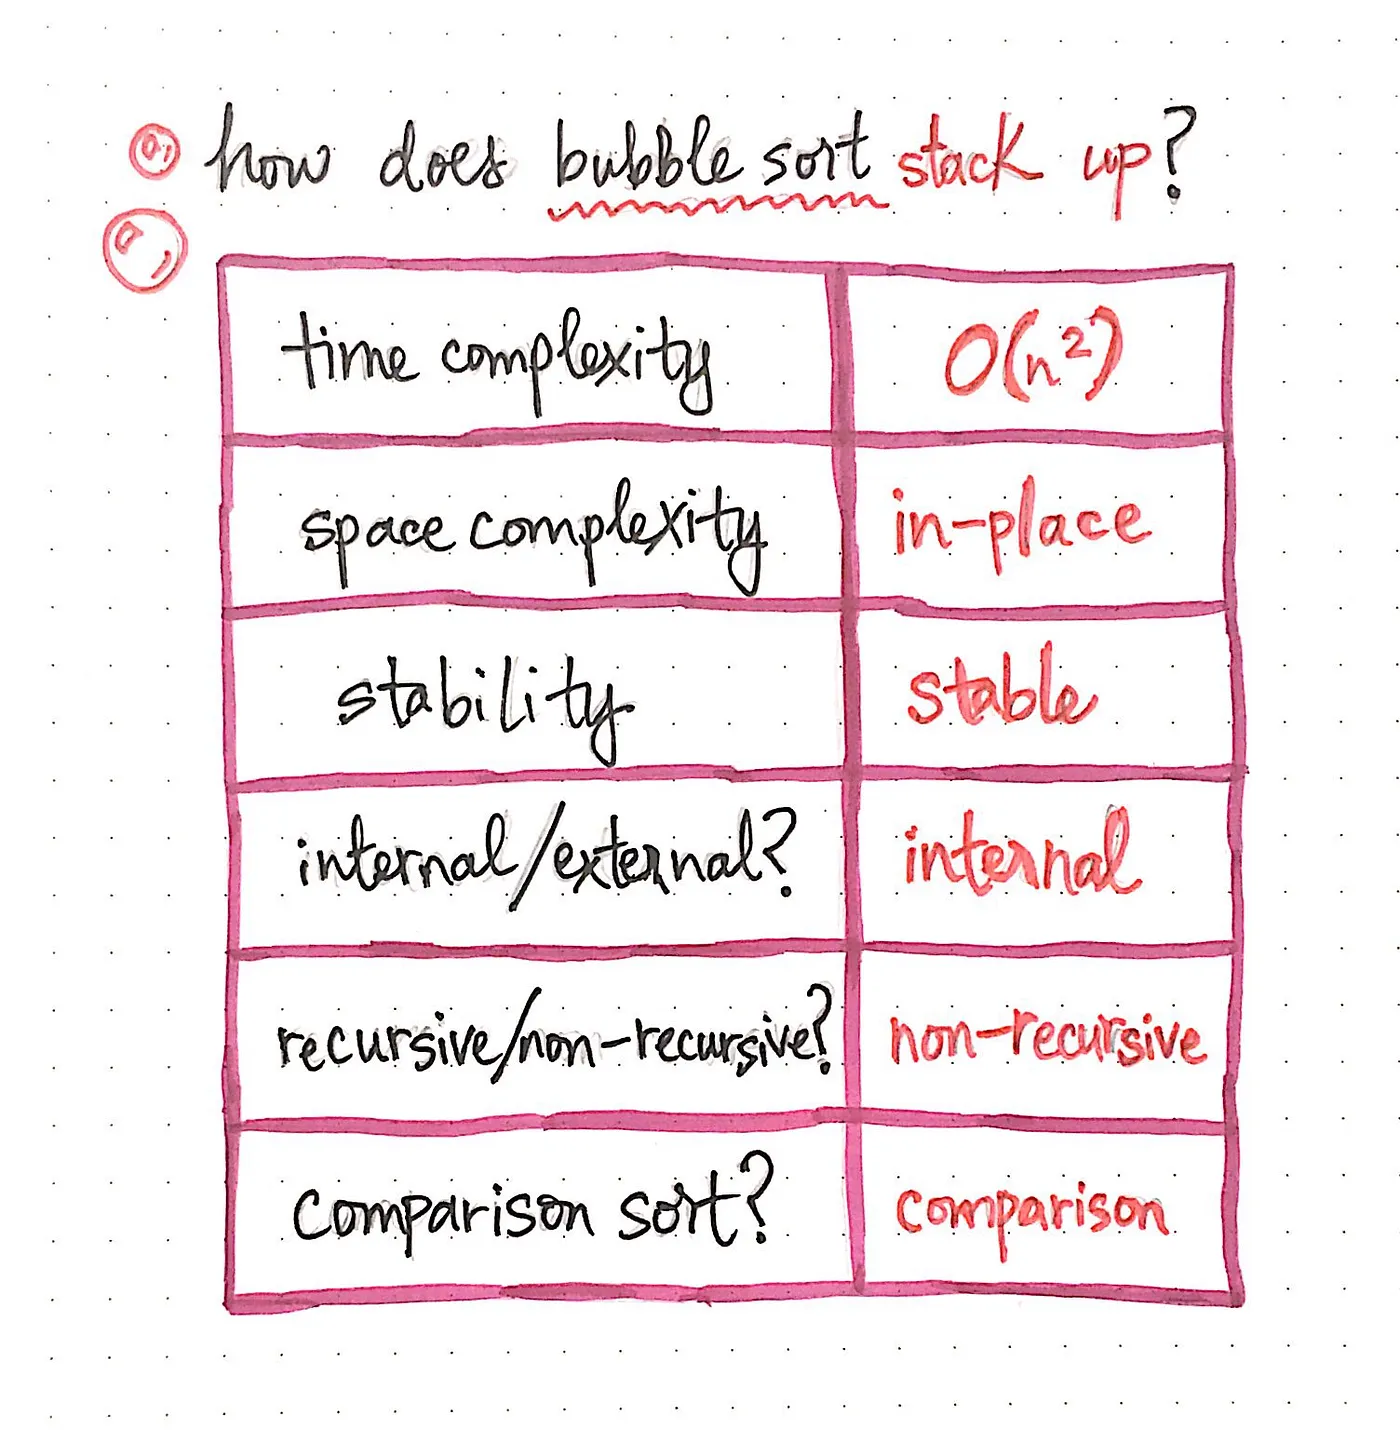 how does bubble sort stack up?
time complexity O(n²)
space complexity in-place
stability stable
internal/external? internal
recursive/non-recursive? non-recursive
comparison sort? comparison